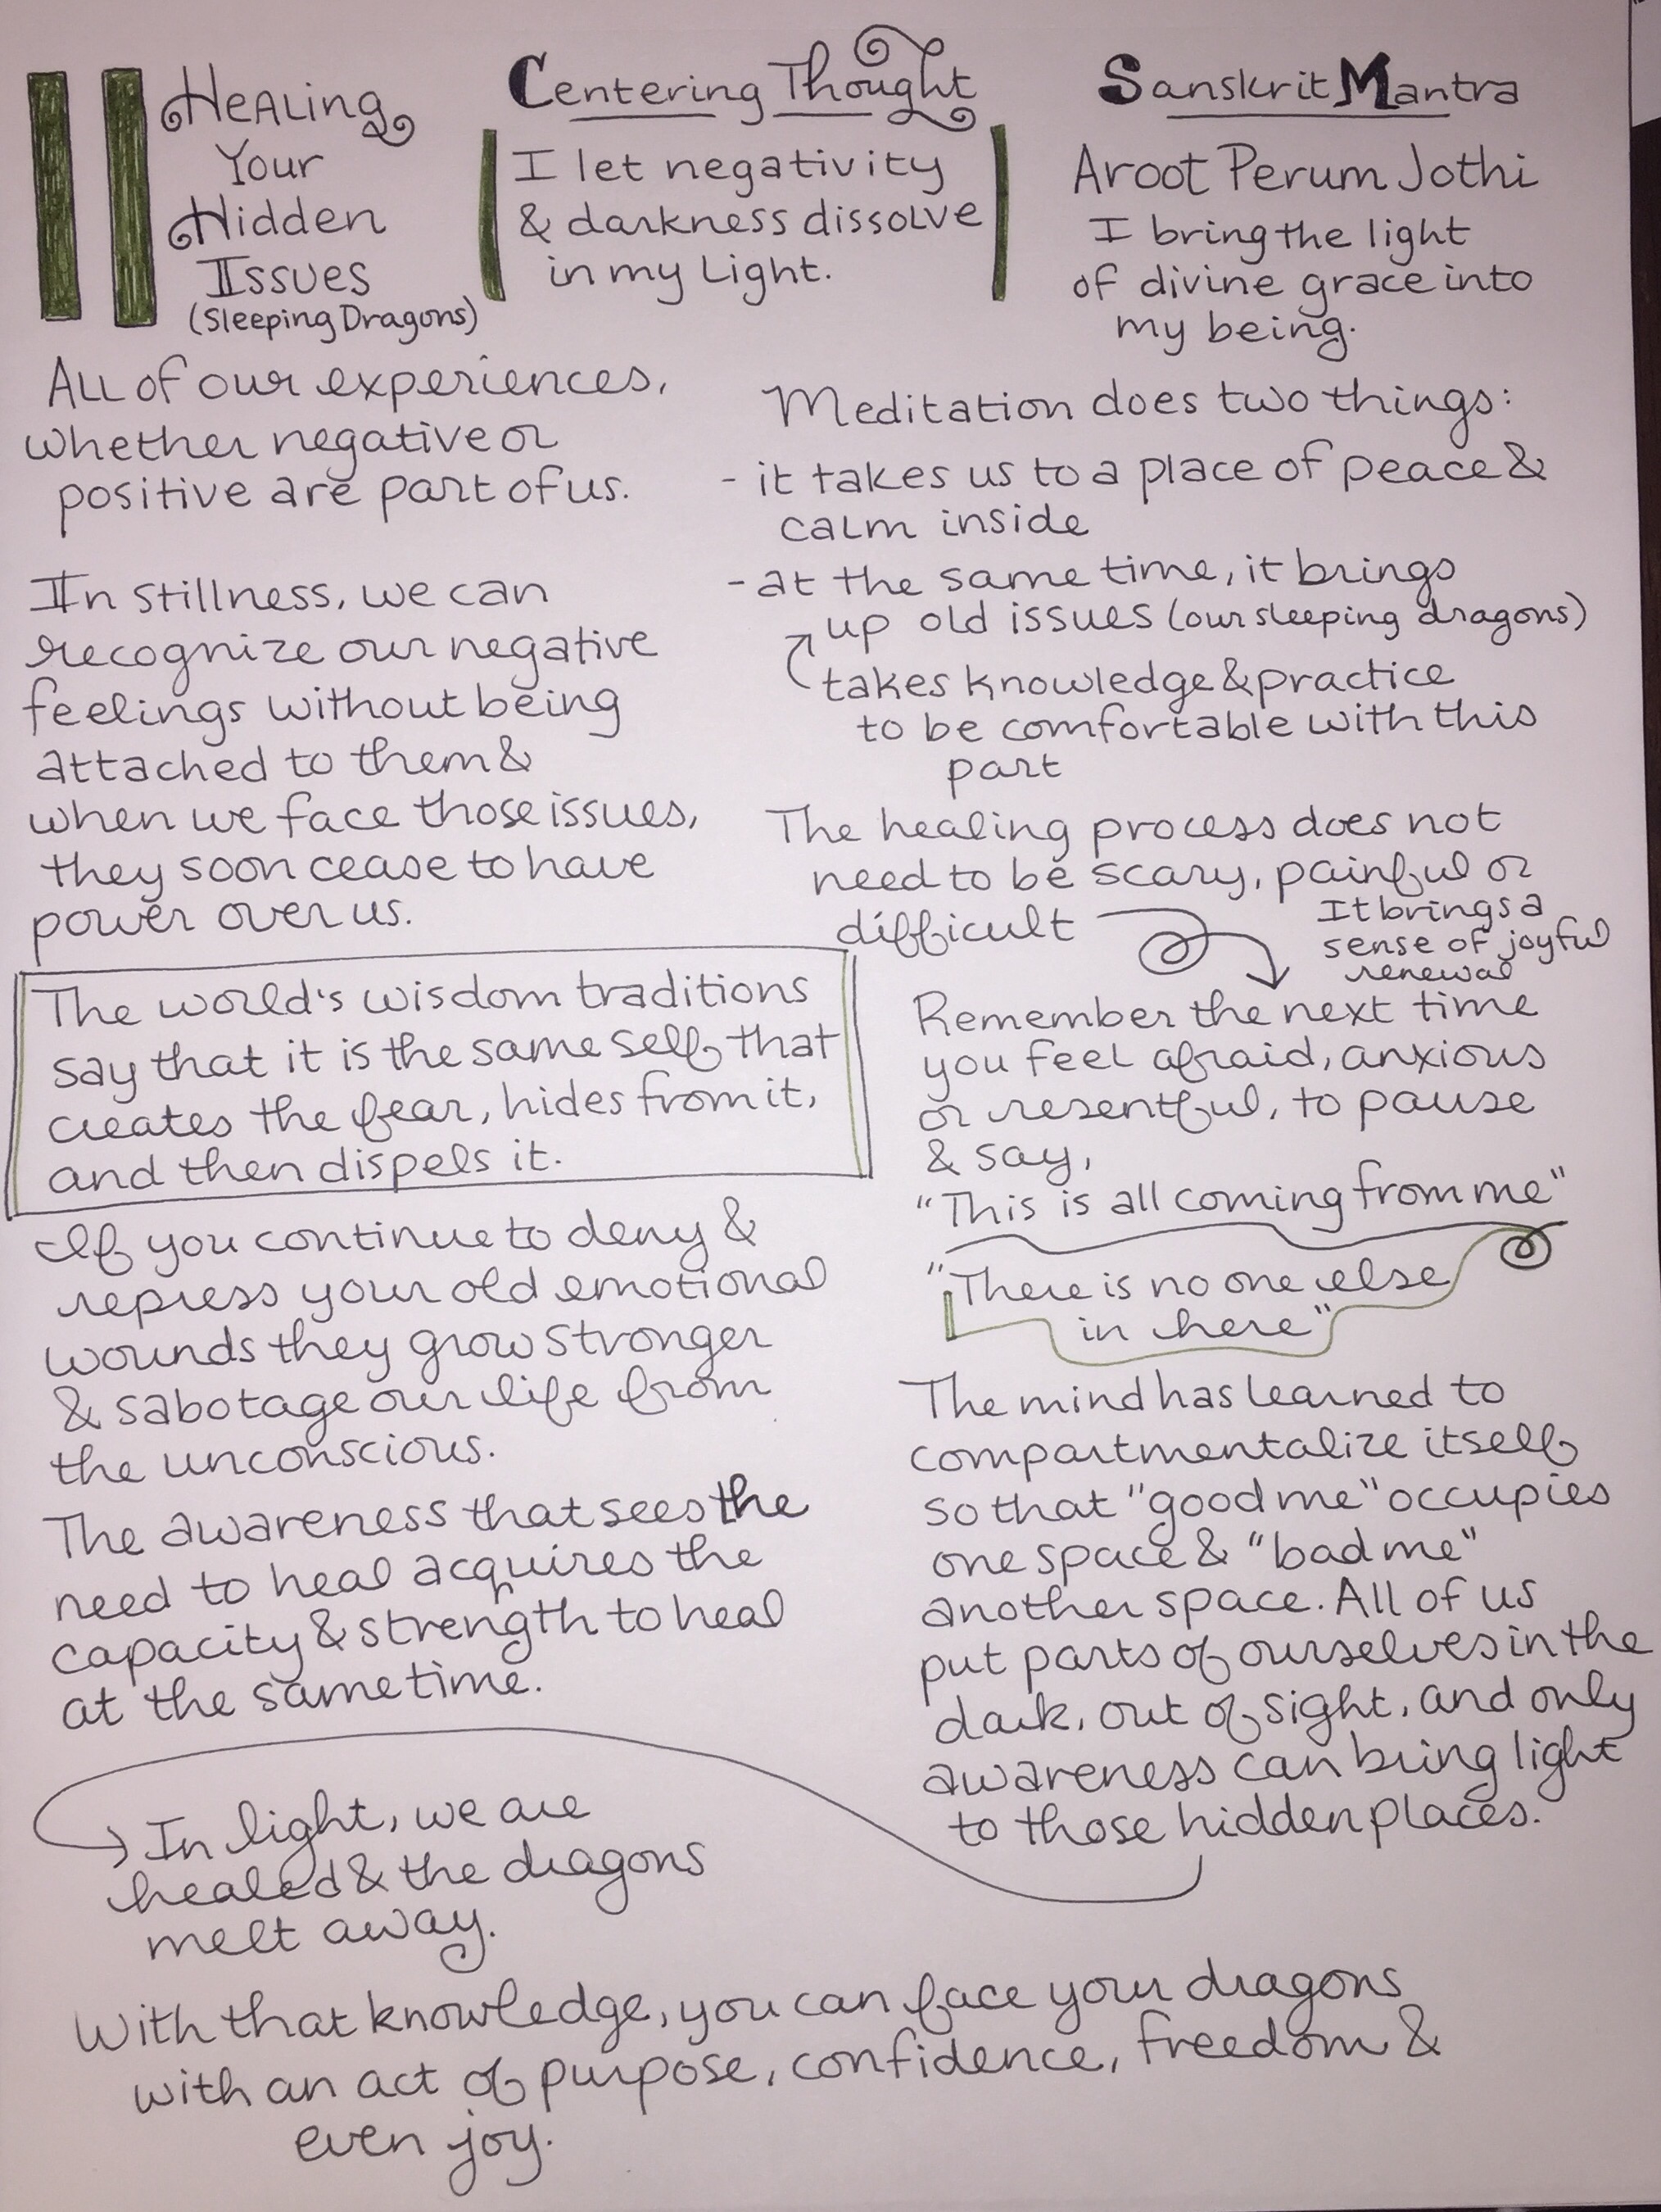 11
Healing
Your
Hidden
Issues
(Sleeping Dragons)
Centering Thought
I let negativity
& darkness dissolve
in my Light.
Sanskrit Mantra
Aroot Perum Jothi
I bring the light
of divine grace into
my being.
All of our experiences,
whether negative or
positive are part of us.
In stillness, we can
recognize our negative
feelings without being
attached to them &
when we face those issues,
they soon cease to have
power over us.
The world's wisdom traditions
say that it is the same self that
creates the fear, hides from it,
and then dispels it.
If you continue to deny &
repress your old emotional
wounds they grow stronger
& sabotage our life from
the unconscious.
The awareness that sees the
need to heal acquires the
capacity & strength to heal
at the same time.
Meditation does two things:
- it takes us to a place of peace &
calm inside
- at the same time, it brings
up old issues (our sleeping dragons)
takes knowledge & practice
to be comfortable with this
part
The healing process does not
need to be scary, painful or
difficult
It brings a
sense of joyful
renewal
Remember the next time
you feel afraid, anxious
or resentful, to pause
& say,
"This is all coming from me"
"There is no one else
in here"
The mind has learned to
compartmentalize itself
so that "good me" occupies
one space & "bad me"
another space. All of us
put parts of ourselves in the
dark, out of sight, and only
awareness can bring light
to those hidden places.
In light, we are
healed & the dragons
melt away.
With that knowledge, you can face your dragons
with an act of purpose, confidence, freedom &
even joy.